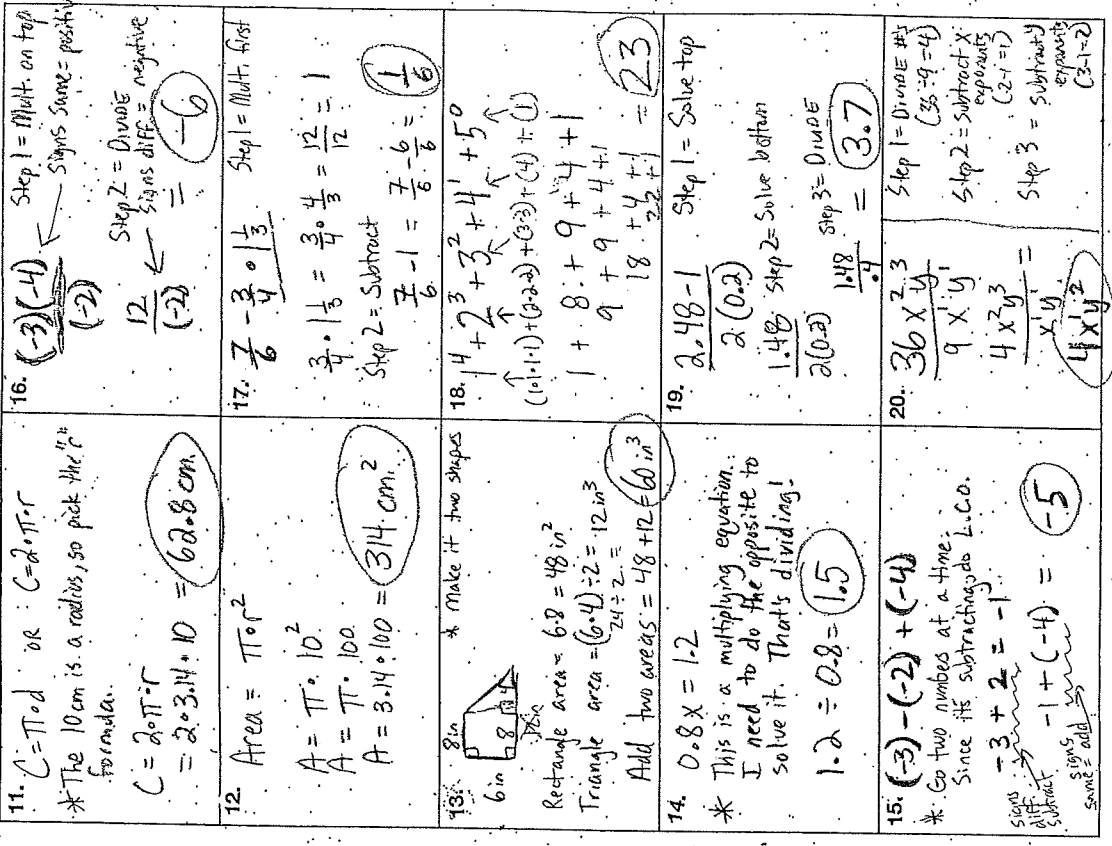 11. C=π∘d OR : C=2∘π∘r
*The 10cm is a radius, so pick the "r"
formula.
C = 2∘π∘r
= 2∘3.14∘10 = 62.8 cm.
12. Area = π∘r²
A = π∘ 10²
A = π∘ 100
A = 3.14∘100 = 314 cm²
13. * Make it two shapes
8in
6in
8 4
Rectangle area = 6∘8 = 48 in²
Triangle area = (6∘4)÷2 = 12in³
24÷2 =
Add two areas = 48+12 = 60in³
14. 0.8x = 1.2
* This is a multiplying equation.
I need to do the opposite to
solve it. That's dividing!
1.2 ÷ 0.8 = 1.5
15. (-3) - (-2) + (-4)
* Go two numbers at a time.
Since its subtracting, do L.C.O.
signs
diff.
subtract
-3 + 2 = -1
-1 + (-4) = -5
signs
same = add
16. (-3)(-4) Step 1 = Mult. on top
(-2) Signs same = positive
12 Step 2 = DIVIDE
(-2) Signs diff = negative
= -6
17. 7/6 - 3/4 ∘ 1 1/3 Step 1 = Mult. first
3/4 ∘ 1 1/3 = 3/4 ∘ 4/3 = 12/12 = 1
Step 2 = Subtract
7/6 - 1 = 7/6 - 6/6 = 1/6
18. 1⁴ + 2³ + 3² + 4¹ + 5⁰
(1∘1∘1∘1)+(2∘2∘2)+(3∘3)+(4)+(1)
1 + 8 + 9 + 4 + 1
9 + 9 + 4 + 1
18 + 4 + 1
22 + 1 = 23
19. 2.48-1 Step 1 = Solve top
2(0.2)
1.48 Step 2 = Solve bottom
2(0.2)
Step 3 = DIVIDE
1.48
.4 = 3.7
20. 36x²y³
9x¹y¹
4x²y³
x¹y¹ =
4x¹y²
Step 1 = DIVIDE #'s
(36÷9=4)
Step 2 = Subtract x
exponents
(2-1=1)
Step 3 = Subtract y
exponents
(3-1=2)